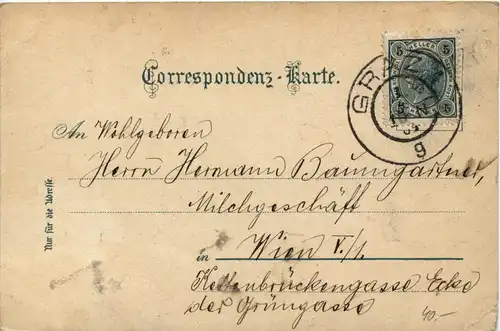 5 HELLER 5
Correspondenz-Karte.
GRAZ 1
g
An Wohlgeboren
Herrn Hermann Baumgartner,
Milchgeschäft
in Wien V./1.
Kettenbrückengasse Ecke
der Grüngasse
Nur für die Adresse.
40.-